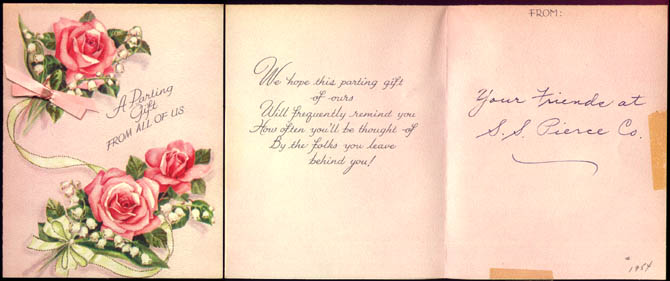 A Parting
Gift
FROM ALL OF US
We hope this parting gift
of ours
Will frequently remind you
How often you'll be thought of
By the folks you leave
behind you!
FROM:
Your Friends at
S. S. Pierce Co.
1954